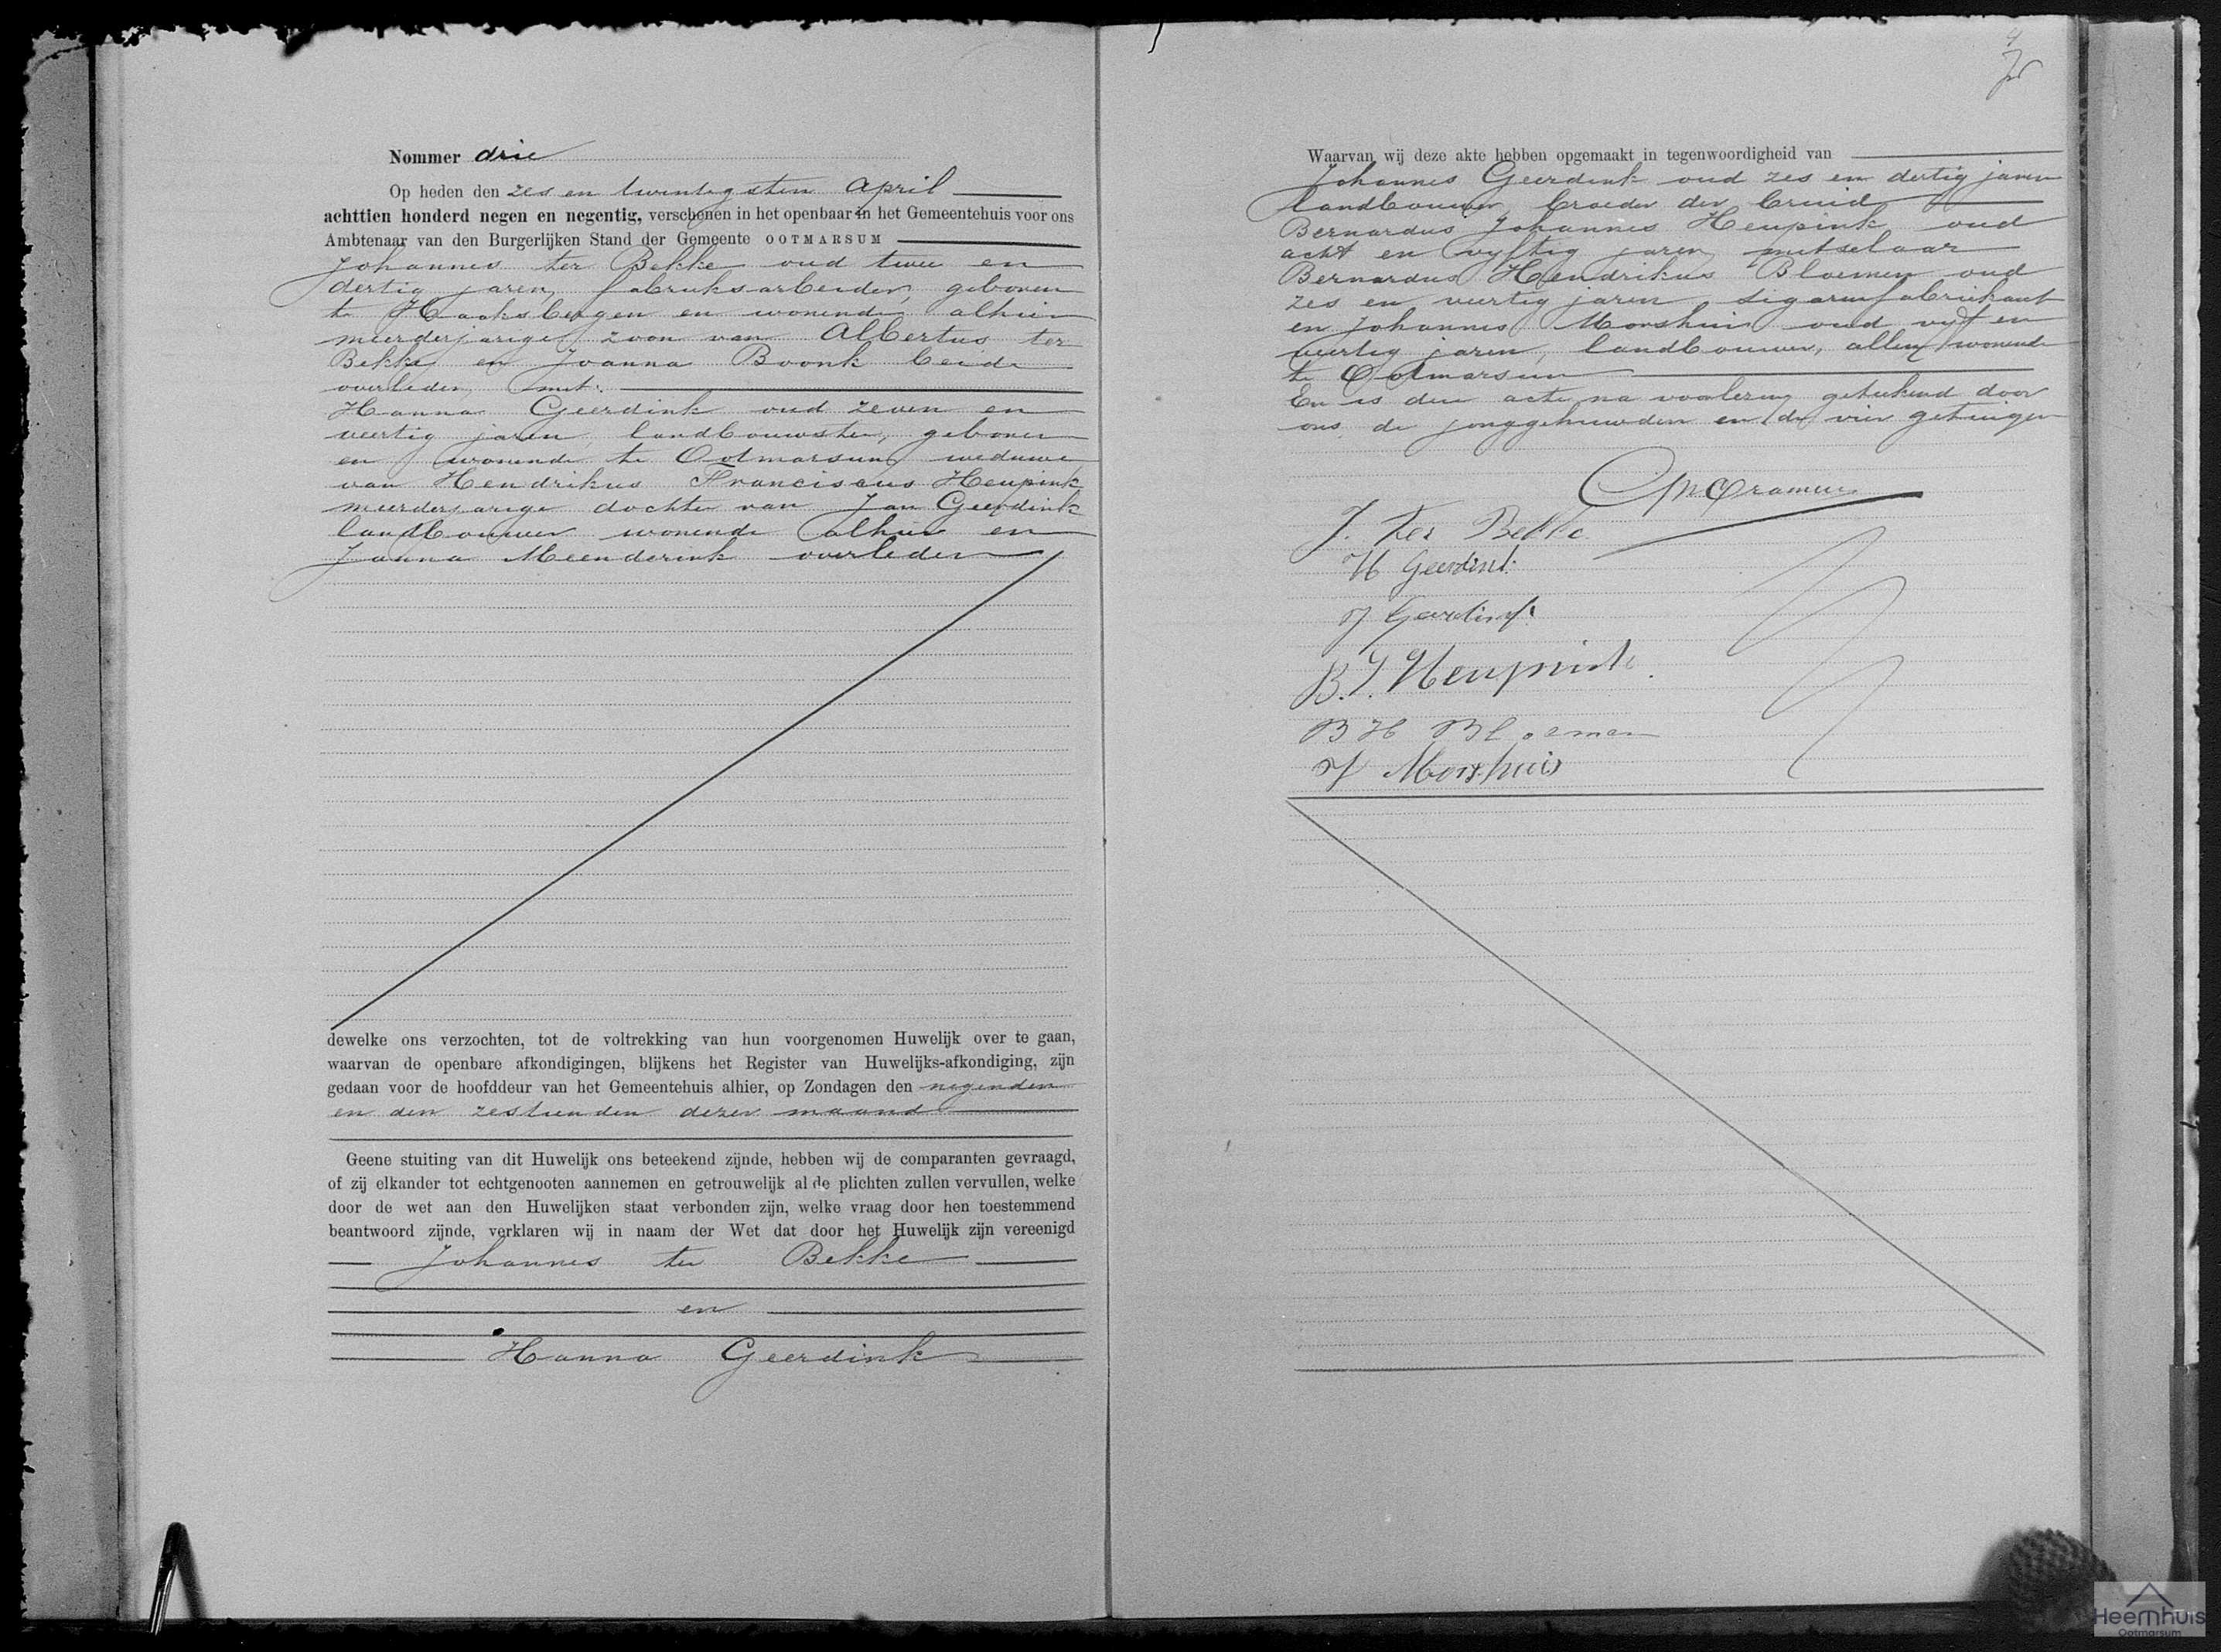 Nommer drie
Op heden den zes en twintigsten April
achttien honderd negen en negentig, verschenen in het openbaar in het Gemeentehuis voor ons
Ambtenaar van den Burgerlijken Stand der Gemeente OOTMARSUM
Johannes ter Bekke oud twee en
dertig jaren, fabrieksarbeider, geboren
te Haaksbergen en wonende alhier
meerderjarige zoon van Albertus ter
Bekke en Joanna Boonk beide
overleden, met:
Hanna Geerdink oud zeven en
veertig jaren landbouwster, geboren
en wonende te Ootmarsum, weduwe
van Hendrikus Franciscus Heupink
meerderjarige dochter van Jan Geerdink
landbouwer wonende alhier en
Janna Meenderink overleden
dewelke ons verzochten, tot de voltrekking van hun voorgenomen Huwelijk over te gaan,
waarvan de openbare afkondigingen, blijkens het Register van Huwelijks-afkondiging, zijn
gedaan voor de hoofddeur van het Gemeentehuis alhier, op Zondagen den negenden
en den zestienden dezer maand
Geene stuiting van dit Huwelijk ons beteekend zijnde, hebben wij de comparanten gevraagd,
of zij elkander tot echtgenooten aannemen en getrouwelijk al de plichten zullen vervullen, welke
door de wet aan den Huwelijken staat verbonden zijn, welke vraag door hen toestemmend
beantwoord zijnde, verklaren wij in naam der Wet dat door het Huwelijk zijn vereenigd
Johannes ter Bekke
en
Hanna Geerdink
Waarvan wij deze akte hebben opgemaakt in tegenwoordigheid van
Johannes Geerdink oud zes en dertig jaren
landbouwer, broeder der bruid
Bernardus Johannes Heupink oud
acht en vyftig jaren, metselaar
Bernardus Hendrikus Bloemen oud
zes en veertig jaren sigarenfabriekant
en Johannes Morshuis oud vyf en
veertig jaren, landbouwer, allen wonende
te Ootmarsum
En is deze acte na voorlezing geteekend door
ons, de jonggehuwden en de vier getuigen
Cramer
J. ter Bekke
H Geerdink
J Geerdink
B. J. Heupink
B H Bloemen
J Morshuis
Heemhuis
Ootmarsum